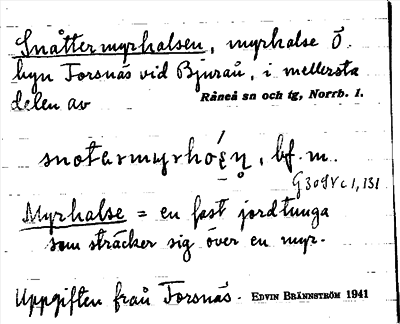 Snåttermyrhalsen, myrhalse Ö.
byn Forsnäs vid Bjuraå, i mellersta
delen av Råneå sn och tg, Norrb. l.
bf. m.
G30SVc1,131
Myrhalse = en fast jordtunga
som sträcker sig över en myr.
Uppgiften från Forsnäs. EDVIN BRÄNNSTRÖM 1941